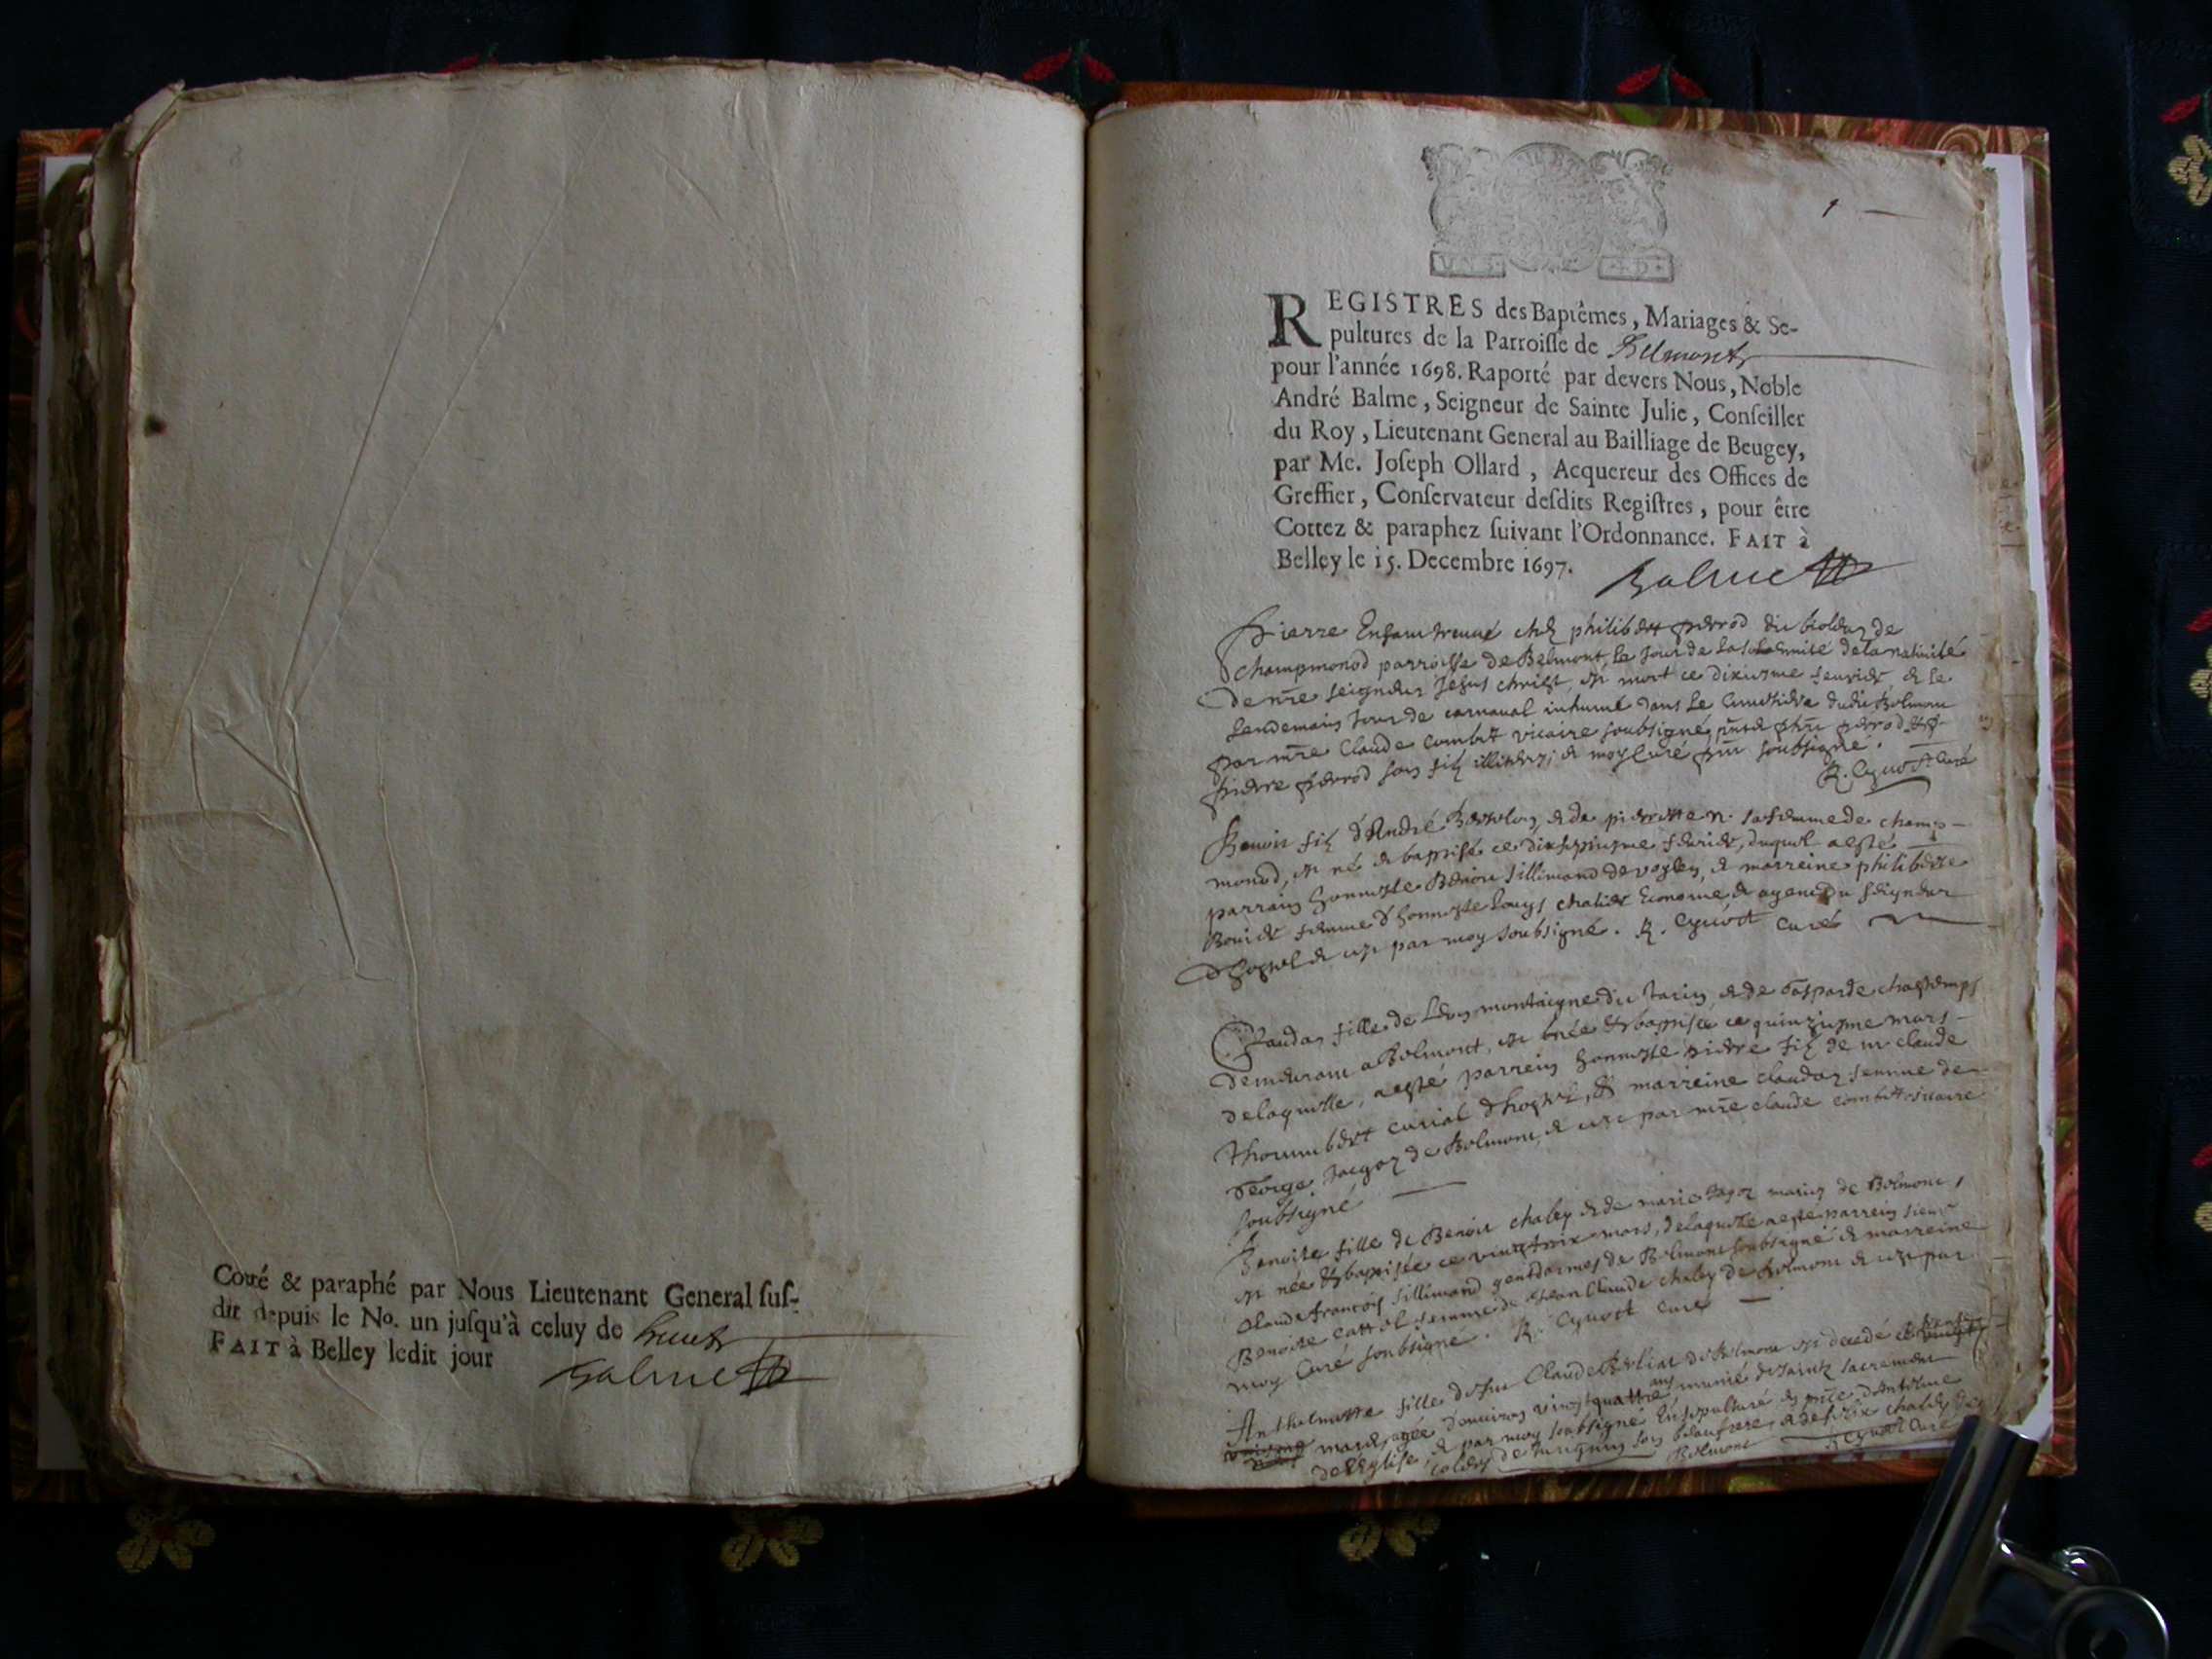 Cotté & paraphé par Nous Lieutenant General suſ-
dit depuis le No. un juſqu'à celuy de huict
FAIT à Belley ledit jour
Balme
1
REGISTRES des Baptêmes, Mariages & Se-
pultures de la Parroiſſe de Belmont
pour l'année 1698. Raporté par devers Nous, Noble
André Balme, Seigneur de Sainte Julie, Conſeiller
du Roy, Lieutenant General au Bailliage de Beugey,
par Me. Joſeph Ollard, Acquereur des Offices de
Greffier, Conſervateur deſdits Regiſtres, pour être
Cottez & paraphez ſuivant l'Ordonnance. FAIT à
Belley le 15. Decembre 1697.
Balme
Pierre Enfant trouvé chez philibert perrod du
champmonod parroisse de Belmont, le jour de la solemnité de la nativité
de nre seigneur Jesus christ, est mort ce dixiesme feuvier, & le
lendemain jour de carnaval inhumé dans le cimetiere dudit Belmont
par mre Claude Combet vicaire soubsigné, perrod &
pierre perrod son filz & moy curé soubsigné.
R. Cyvoct Curé
Benoit filz d'André & de pierrette n. sa femme de champ-
monod, est né & baptisé ce dixseptiesme feuvier, duquel a esté
parrain honneste Benoit Sillimand de & marreine philiberte
femme d'honneste Louys chalier Econome & agent du seigneur
d'hostel & ce par moy soubsigné. R. Cyvoct Curé
Claudaz fille de montaigne du & de Gasparde
demeurant a Belmont, est née & baptisée ce quinziesme mars
de laquelle a esté parrein honneste pierre filz de mr claude
thorumbert curial d'hostel, & marreine claudaz femme de
George Jacquoz de Belmont, & ce par mre claude combet vicaire
soubsigné
Benoite fille de Benoit chaley & de marie mariez de Belmont,
est née & baptisée ce vingt mars, de laquelle a esté parrein sieur
Claude francois Sillimand gendarmes de Belmont soubsigné & marreine
Benoite femme de Jean Claude chaley de Belmont & ce par
moy Curé soubsigné. R. Cyvoct Curé
Anthelmette fille de feu Claude de Belmont est decedé
mars, agée d'environ vingt quattre ans munie de saints sacrement
de l'Eglise, & par moy soubsigné Ensepulturé en d'Antelme
de son beaufrere, & de felix chaley de
Belmont R Cyvoct Curé